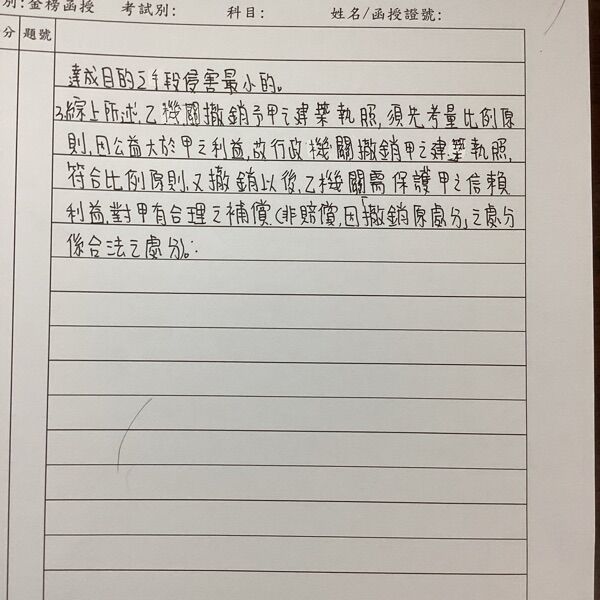 別:金榜函授 考試別: 科目: 姓名/函授證號:
分 題號
達成目的之手段侵害最小的。
3.綜上所述,乙機關撤銷予甲之建築執照,須先考量比例原
則,因公益大於甲之利益,故行政機關撤銷甲之建築執照,
符合比例原則,又撤銷以後,乙機關需保護甲之信賴
利益,對甲有合理之補償。(非賠償,因「撤銷原處分」之處分
係合法之處分)。